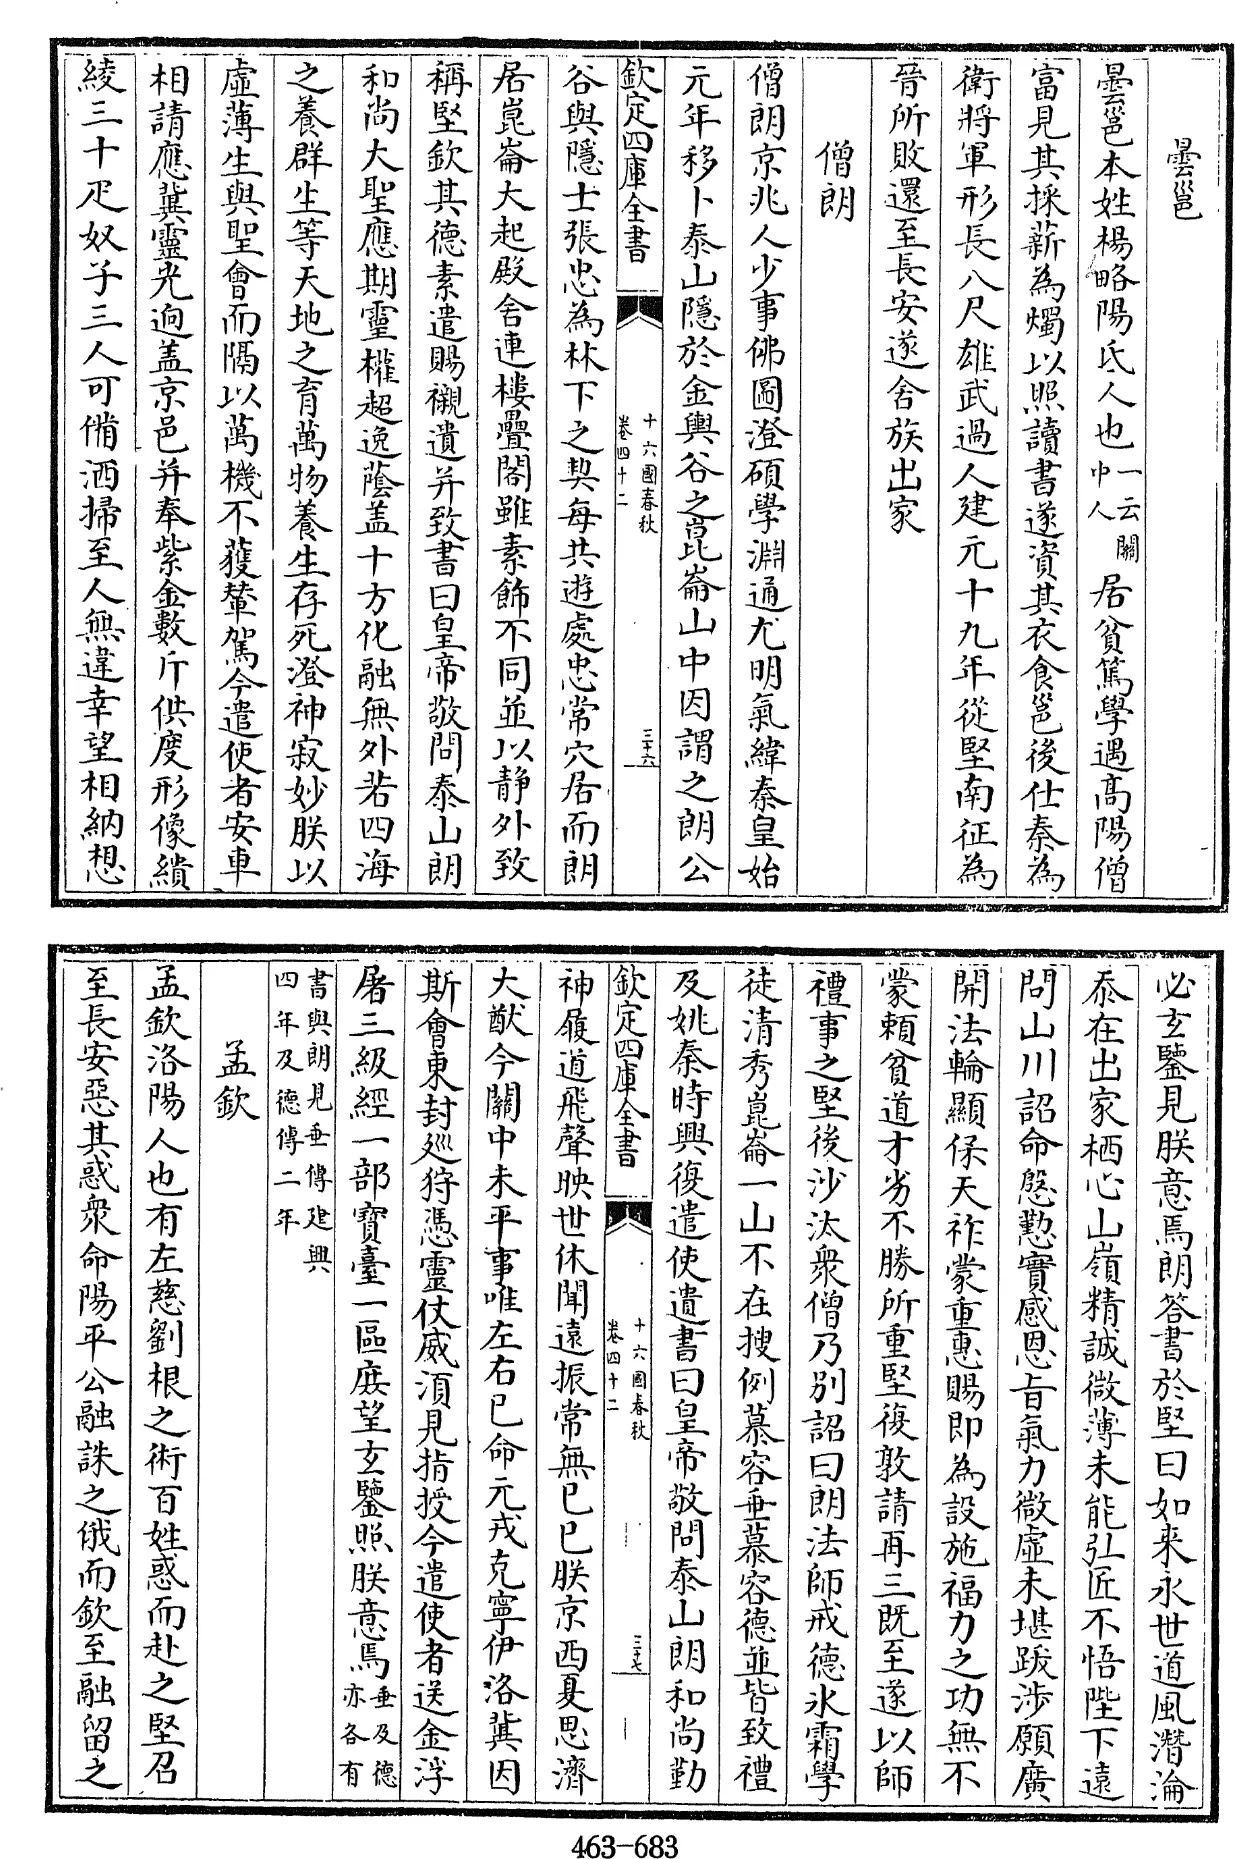 曇邕
曇邕本姓楊略陽氐人也一云關中人居貧篤學遇高陽僧
富見其採薪為燭以照讀書遂資其衣食邕後仕秦為
衛將軍形長八尺雄武過人建元十九年從堅南征為
晉所敗還至長安遂舍族出家
僧朗
僧朗京兆人少事佛圖澄碩學淵通尤明氣緯秦皇始
元年移卜泰山隱於金輿谷之崑崙山中因謂之朗公
欽定四庫全書
十六國春秋
卷四十二
三十六
谷與隱士張忠為林下之契每共遊處忠常穴居而朗
居崑崙大起殿舍連樓疊閣雖素飾不同並以静外致
稱堅欽其德素遣賜襯遺并致書曰皇帝敬問泰山朗
和尚大聖應期靈權超逸蔭盖十方化融無外若四海
之養群生等天地之育萬物養生存死澄神寂妙朕以
虛薄生與聖會而隔以萬機不獲輦駕今遣使者安車
相請應冀靈光迴盖京邑并奉紫金數斤供度形像繢
綾三十疋奴子三人可備洒掃至人無違幸望相納想
必玄鑒見朕意焉朗答書於堅曰如来永世道風潛淪
忝在出家栖心山嶺精誠微薄未能弘匠不悟陛下遠
問山川詔命慇懃實感恩旨氣力微虛未堪跋涉願廣
開法輪顯保天祚蒙重惠賜即為設施福力之功無不
蒙頼貧道才劣不勝所重堅復敦請再三既至遂以師
禮事之堅後沙汰衆僧乃别詔曰朗法師戒德氷霜學
徒清秀崑崙一山不在搜例慕容垂慕容德並皆致禮
及姚秦時興復遣使遺書曰皇帝敬問泰山朗和尚勤
欽定四庫全書
十六國春秋
卷四十二
三十七
神履道飛聲映世休聞遠振常無已已朕京西夏思濟
大猷今關中未平事唯左右已命元戎克寧伊洛冀因
斯會東封廵狩憑靈仗威湏見指授今遣使者送金浮
屠三級經一部寶臺一區庶望玄鑒照朕意焉垂及德亦各有
書與朗見垂傳建興四年及德傳二年
孟欽
孟欽洛陽人也有左慈劉根之術百姓惑而赴之堅召
至長安惡其惑衆命陽平公融誅之俄而欽至融留之
463-683